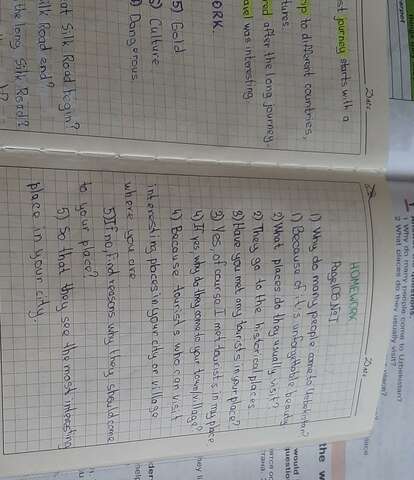 st journey starts with a
ip to different countries,
tures.
red after the long journey.
avel was interesting
ORK
5) Gold
6) Culture
Dangerous
at Silk Road begin?
ilk Road end?
the long Silk Road?
Date
HOMEWORK
Page 106 № 1
1) Why do many people come to Uzbekistan?
1) Because of it's unforgettable beauty
2) What places do they usually visit?
2) They go to the historical places.
3) Have you met any tourists in your place?
3) Yes, of course. I met tourists in my place
4) If yes, why do they come to your town/village?
4) Because tourists who can visit
interesting places in your city or village
where you are
5) If no, find reasons why they should come
to your place?
5) So that they see the most interesting
place in your city.
Date
1 Why do many people come to Uzbekistan?
2 What places do they usually visit?
place?
the w
would
questio
they li